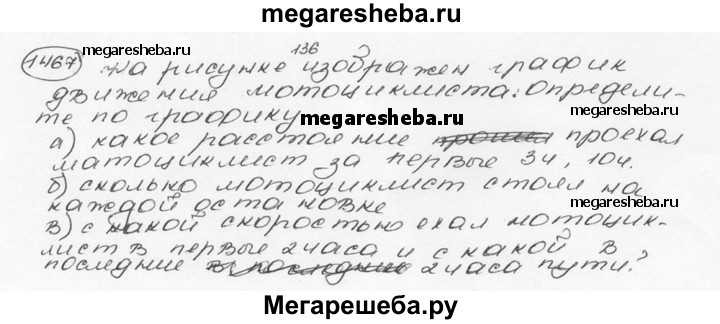 megaresheba.ru
1467 136
megaresheba.ru На рисунке изображен график megaresheba.ru
движения мотоциклиста. Определи-
те по графику megaresheba.ru
а) какое расстояние проехал
матоциклист за первые 3ч, 10ч.
б) сколько мотоциклист стоял на
каждой остановке
в) с какой скоростью ехал мотоцик-
лист в первые 2 часа и с какой в
последние 2 часа пути?
Мегарешеба.ру